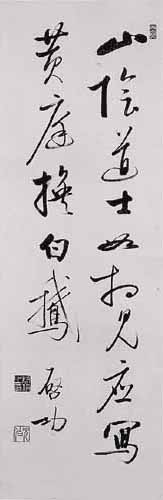 山陰道士如相見應寫
黃庭換白鵞
啓功